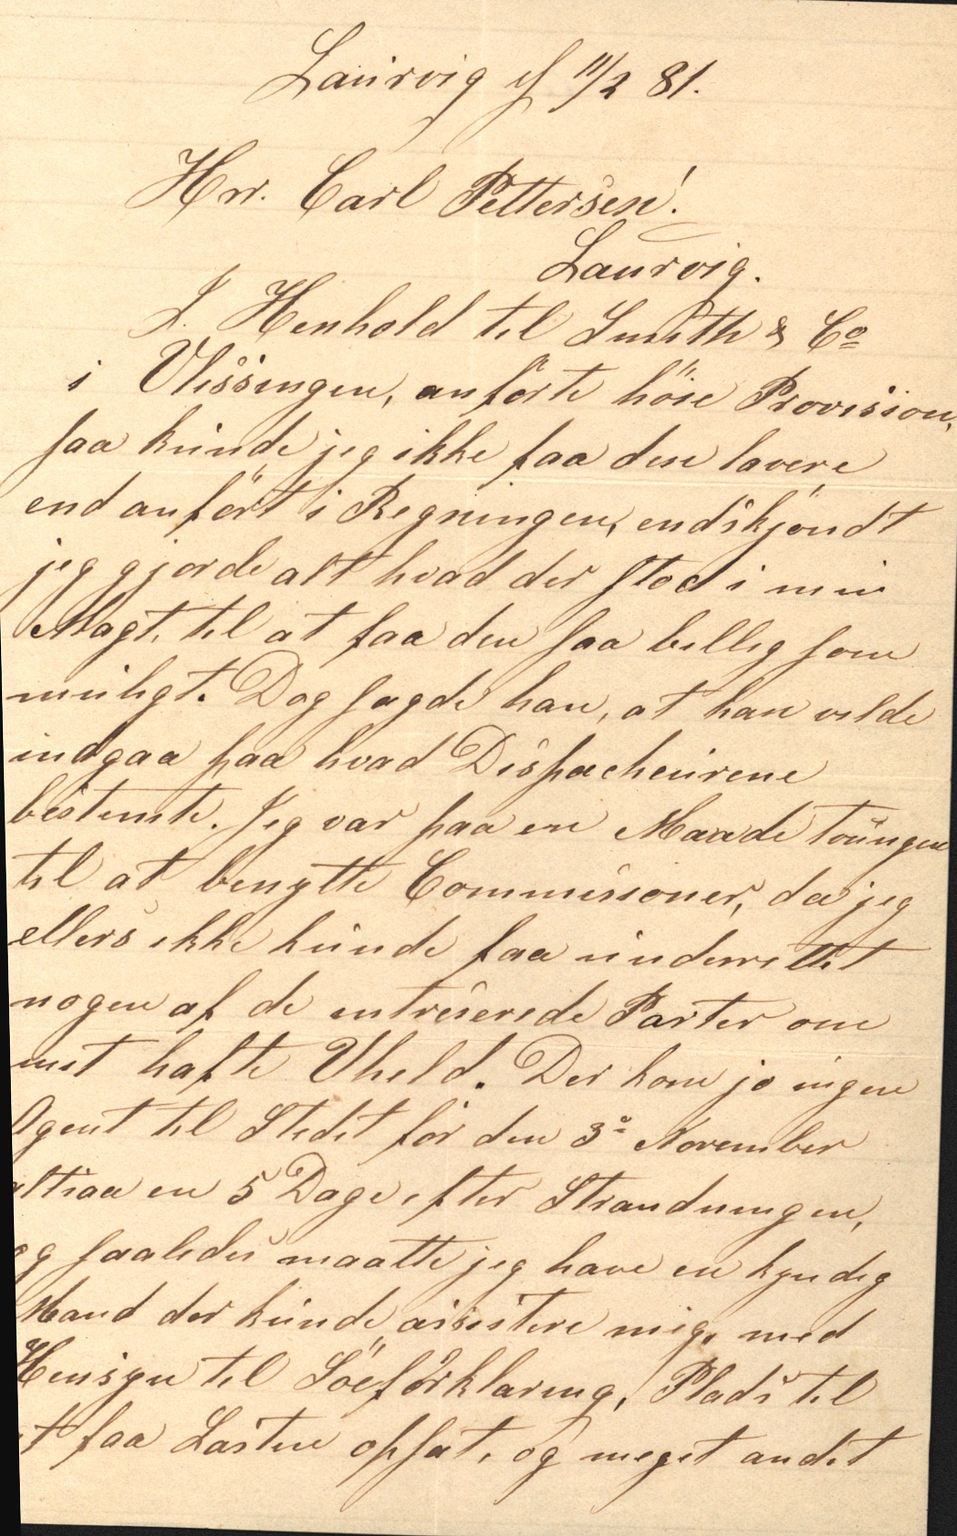 Laurvig d 11/2 81.
Hrr. Carl Pettersen!
Laurvig.
I Henhold til Smith & Co
i Vlissingen, anförte höie Provision,
saa kunde jeg ikke faa den lavere
end anfört i Regningen, endskjöndt
jeg gjorde alt hvad der stod i min
Magt til at faa den saa billig som
muligt. Dog sagde han, at han vilde
indgaa paa hvad Dispacheurene
bestemte. Jeg var paa en Maade tvungen
til at benytte Commissioner, da jeg
ellers ikke kunde faa underrettet
nogen af de intreserede Parter om
mit hafte Uheld. Der kom jo ingen
Agent til Stedet för den 3º November
altsaa en 5 Dage efter Strandningen,
og saaledes maatte jeg have en kyndig
Mand der kunde assistere mig, med
Hensyn til Söeförklaring, Plads til
at faa Lasten opsat, og meget andet